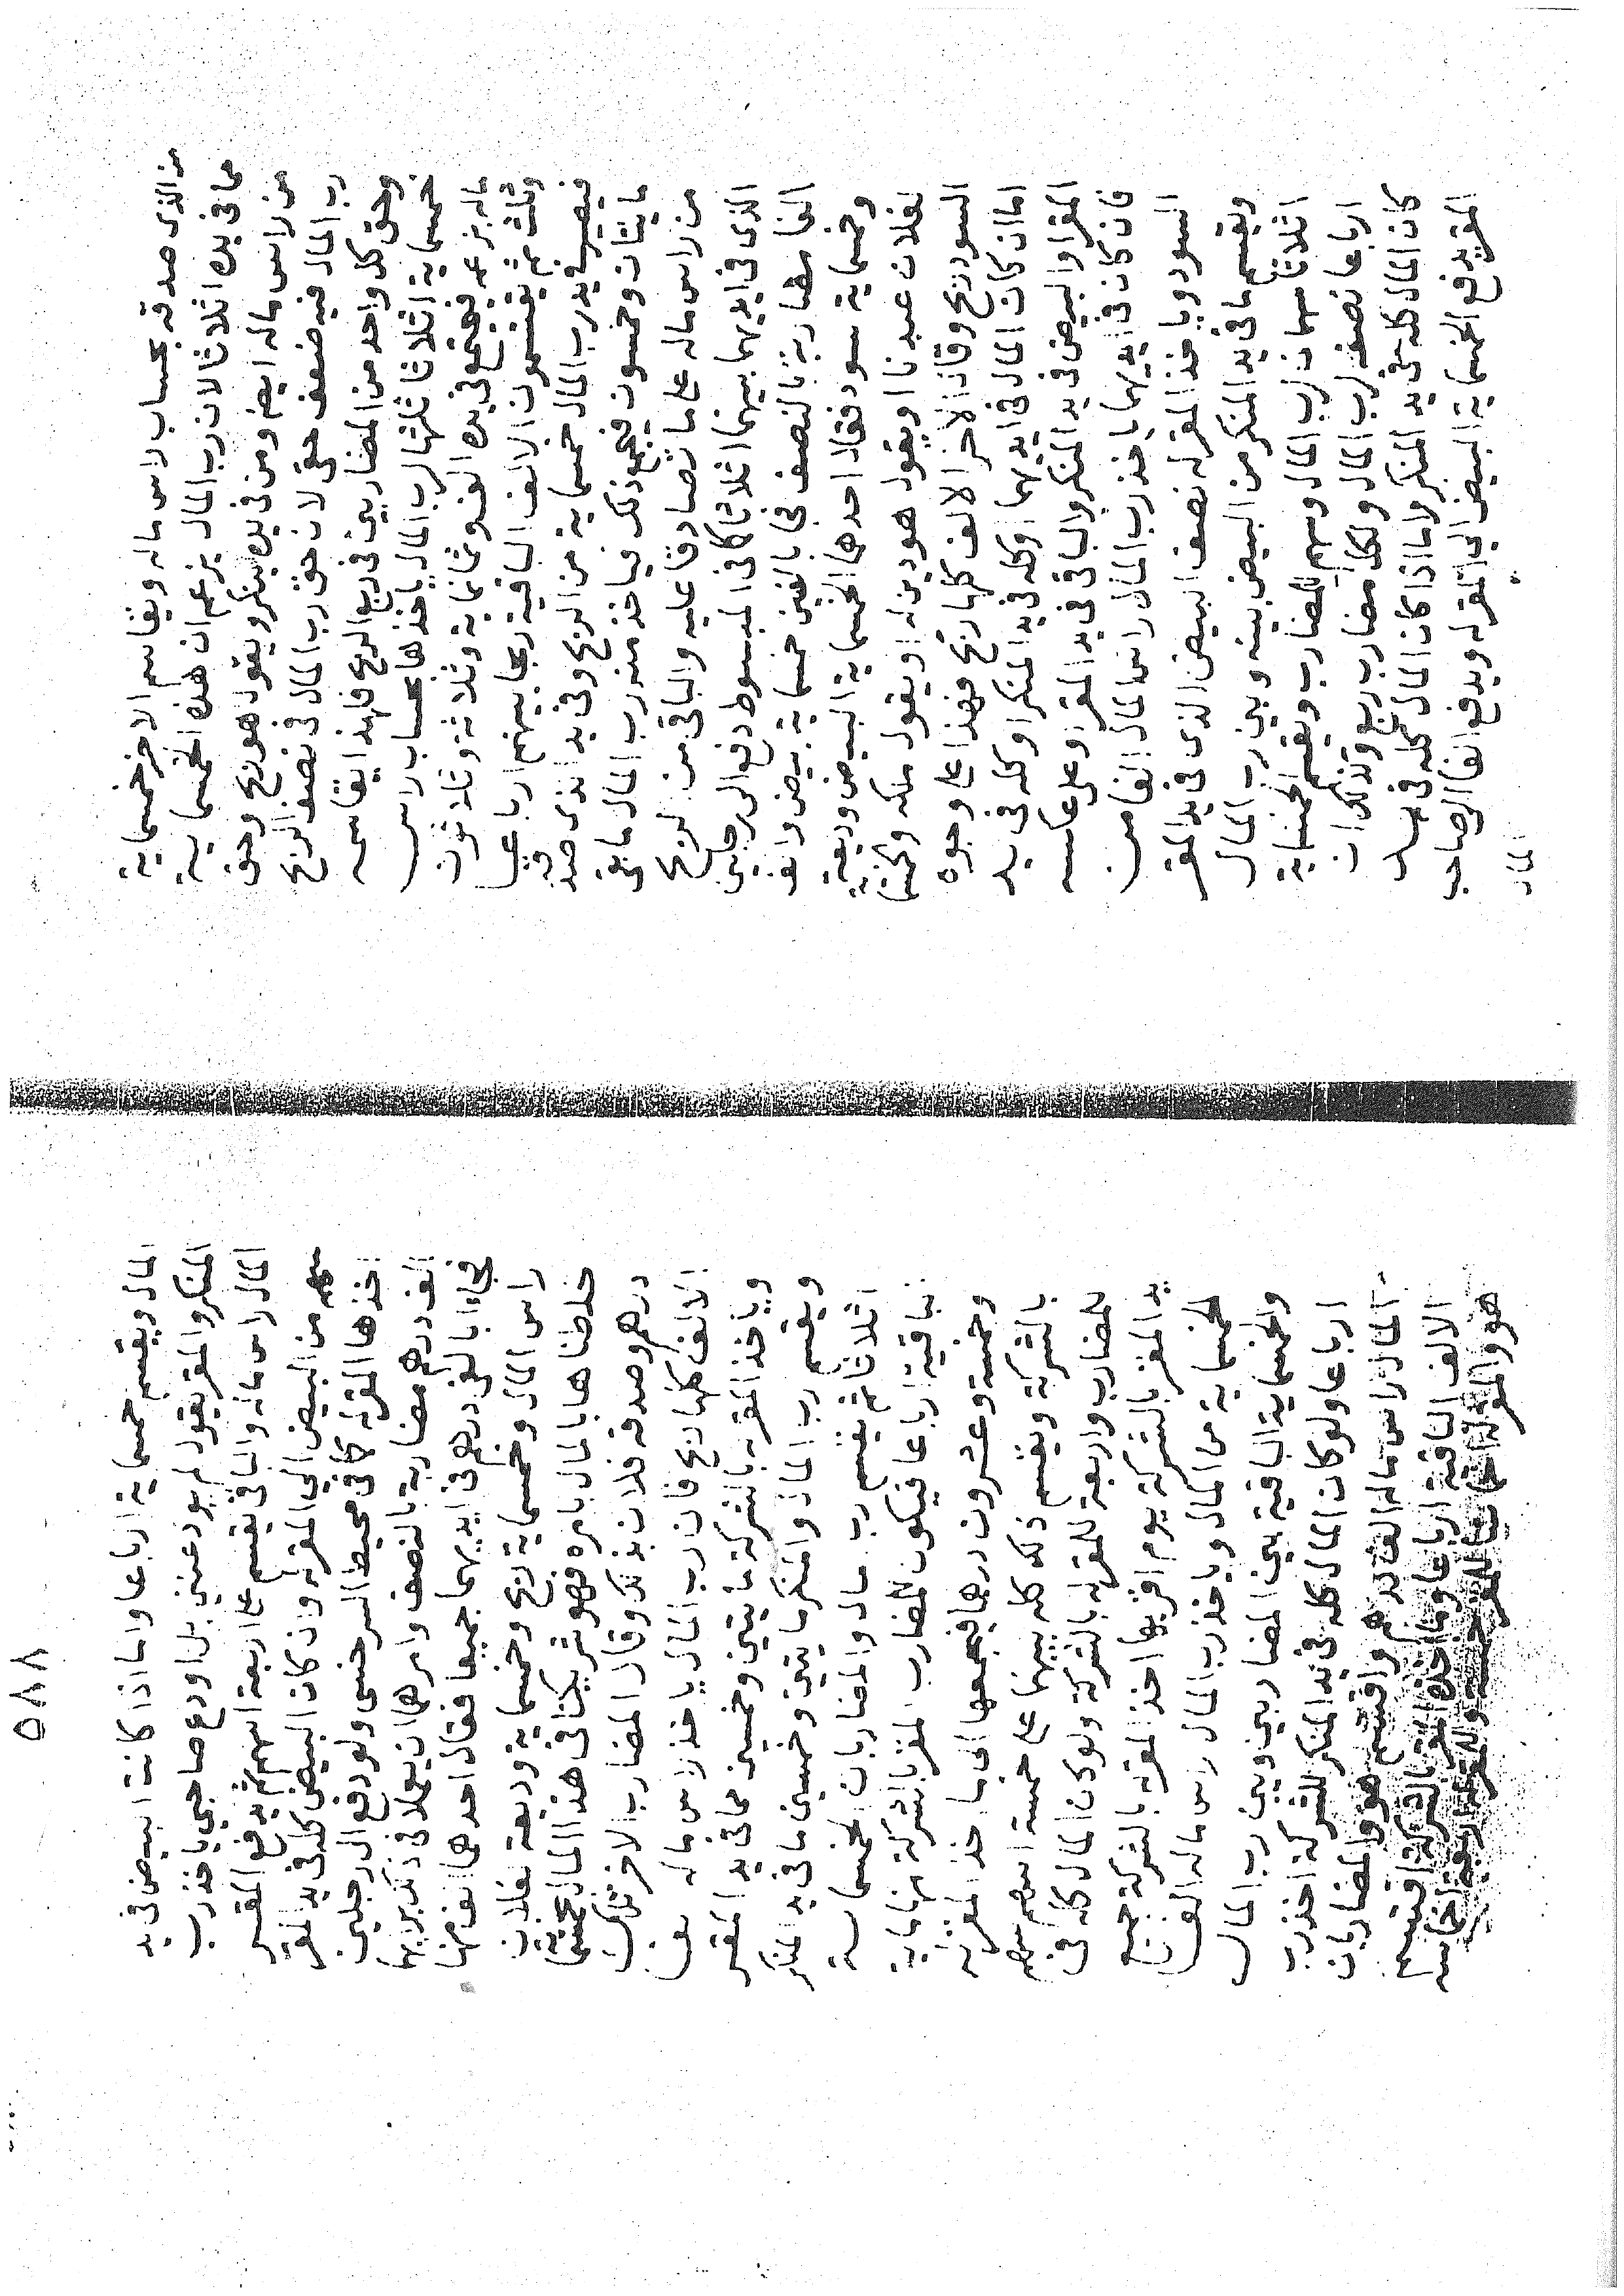 من الذى صدقه بحساب راس ماله ويقاسم الاخر خمسماية
مما فى يده اثلاثا لان رب المال يزعم ان هذه الخمسماية
من راس ماله ايضا ومن فى يده ينكر ويقول هو ربح وحق
رب المال فيه ضعف حقى لان حق رب المال فى نصف الربح
وحق كل واحد من المضاربين فى ربع الربح فلهذا يقاسمه
خمسماية اثلاثا ثلثها لرب المال ياخذها بحساب راس
ماله بزعمه فيجتمع فى يده الف وثمانماية وثلاثة وثلاثون
وثلث ثم يقتسمون الالف الباقية ربحا بينهم ارباعا
فيصير فى يد رب المال خمسماية من الربح وفى يد الذى صدقه
مايتان وخمسون فيجمع ذلك فياخذ منه رب المال ما بقى
من راس ماله على ما تصادقا عليه والباقى من الربح
الذى فى ايديهما بينهما اثلاثا كما فى المبسوط دفع الى رجلين
الفا مضاربة بالنصف فجا بالفين خمسماية بيض والف
وخمسماية سود فقال احدهما الخمسماية البيض وديعة
لفلان عبدنا او يقول هو دين له او يقول ملكه والخمسماية
السود ربح وقال الاخر الالف كلها ربح فهذا على وجوه
اما ان كان المال فى ايديهما او كله فى يد المنكر او كله فى يد
المقر او البيض فى يد المنكر والباقى فى يد المقر او على عكسه
فان كان فى ايديهما ياخذ رب المال راس المال الفا من
السود وياخذ المقر له نصف البيض الذى فى يد المقر
ويقسم ما فى يد المنكر من البيض بينه وبين رب المال
اثلاثا سهمان لرب المال وسهم للمضارب ويقسم الخمسماية
ارباعا نصفه لرب المال ولكل مضارب ربع وكذلك ان
كان المال كله فى يد المنكر واما اذا كان المال كله فى يد
المقر يدفع الخمسماية البيض الى المقر له ويدفع الفا لصاحب
المال
٥٨٨
المال ويقسم خمسماية ارباعا واما اذا كانت البيض فى يد
المنكر والمقر يقول لم يودعنى بل اودع صاحبى ياخذ رب
المال راس ماله والباقى يقسم على اربعة اسهم ثم يدفع المقر
سهمه من البيض الى المقر له وان كان البيض كله فى يد المقر
اخذها المقر له كما فى محيط السرخسى ولو دفع الى رجلين
الف درهم مضاربة بالنصف وامرهما ان يعملا فى ذلك برايهما
فجاءا بالفى درهم فى ايديهما جميعا فقال احدهما الف منها
راس المال وخمسماية ربح وخمسماية وديعة لفلان
خلطناها بالمال بامره فهو شريكنا فى هذا المال بخمسماية
درهم وصدقه فلان بذلك وقال المضارب الاخر بل
الالف كلها ربح فان رب المال ياخذ راس ماله الف
وياخذ المقر له بالشركة مايتين وخمسين مما فى يد المقر
ويقسم رب المال والمنكر مايتين وخمسين مما فى يد المنكر
اثلاثا ثم يقتسم رب المال والمضاربان الخمسماية
الباقية ارباعا فيكون للمضارب المقر بالشركة منها ماية
وخمسة وعشرون درهما فيجمعها الى ما اخذ المقر له
بالشركة ويقسم ذلك كله بينهما على خمسة اسهم سهم
للمضارب واربعة للمقر له بالشركة ولو كان المال كله فى
يد المقر بالشركة يوم اقر بها اخذ المقر له بالشركة جميع
الخمسماية من المال وياخذ رب المال راس ماله الف
والخمسماية الباقية بين المضاربين وبين رب المال
ارباعا ولو كان المال كله فى يد المنكر للشركة اخذ رب
المال راس ماله الف درهم واقتسم هو والمضاربان
الالف الباقية ارباعا وما اخذه المقر بالشركة اقتسمه
هو والمقر له اخماسا